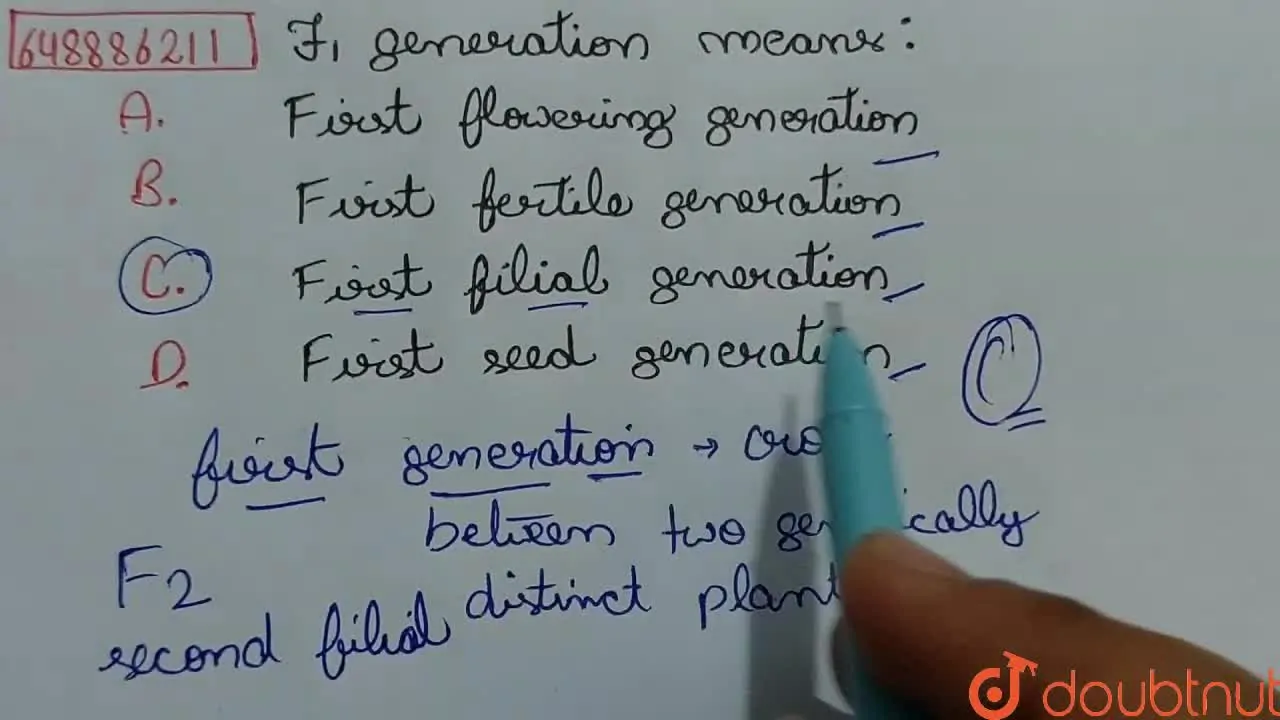 648886211 F1 generation means:
A. First flowering generation
B. First fertile generation
C. First filial generation
D. First seed generation
C
first generation →
between two
F2 distinct
second filial
doubtnut